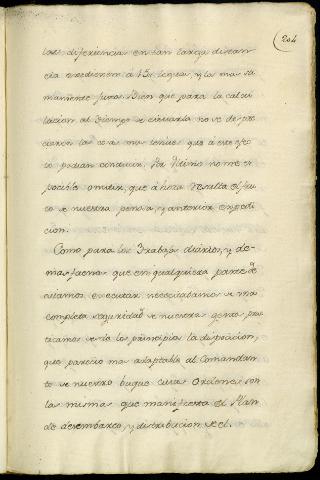 204
las diferiencias en tan larga distan
cia excedieron á 15. leguas, y la mas su
maniente fuera. Bien que para la calcu
lacion al tiempo de situarla no se despre
ciaron las cosas mas tenues que á este efec
to podian conducir. Por ultimo no me es
posible omitir, que ahora resulta el fru
to de nuestra penosa, y anterior expedi
cion.
Como para los Trabajos diarios, y de
mas faenas que en qualquiera parte de
cutamos executar, necesitabamos de mas
completa seguridad de nuestra gente prac
ticamos desde los principios la disposicion,
que parecio mas adaptable al Comandan
te de nuestro buque cuias Ordenes son
las mismas que manifiesta el Plan
de desembarco, y distribucion de el.